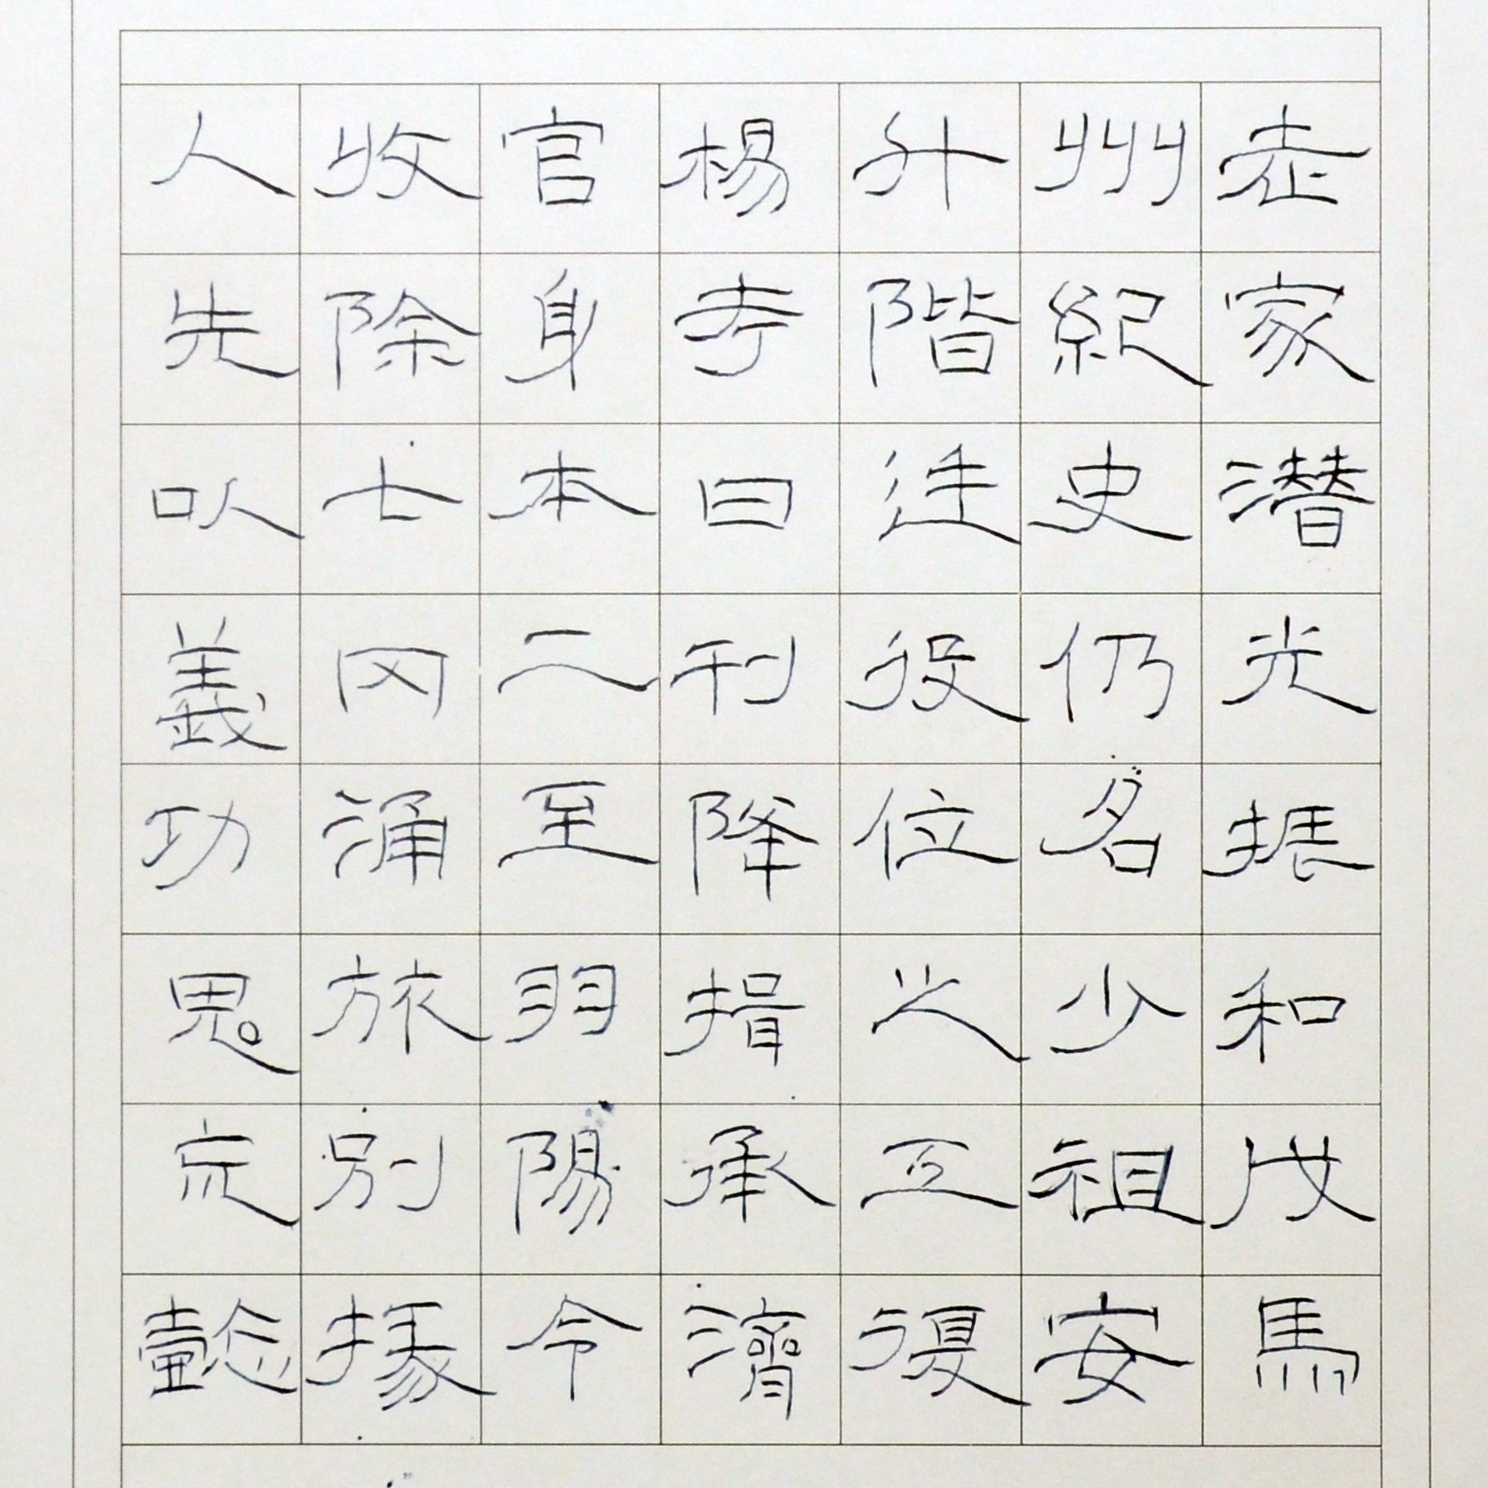 走家潜光振和戊馬
州紀史仍名少祖安
升階迬役位之互復
楊孝曰刊降揖承濟
官身本二至羽陽令
收除士冈涌旅別掾
人先以義功思元懿